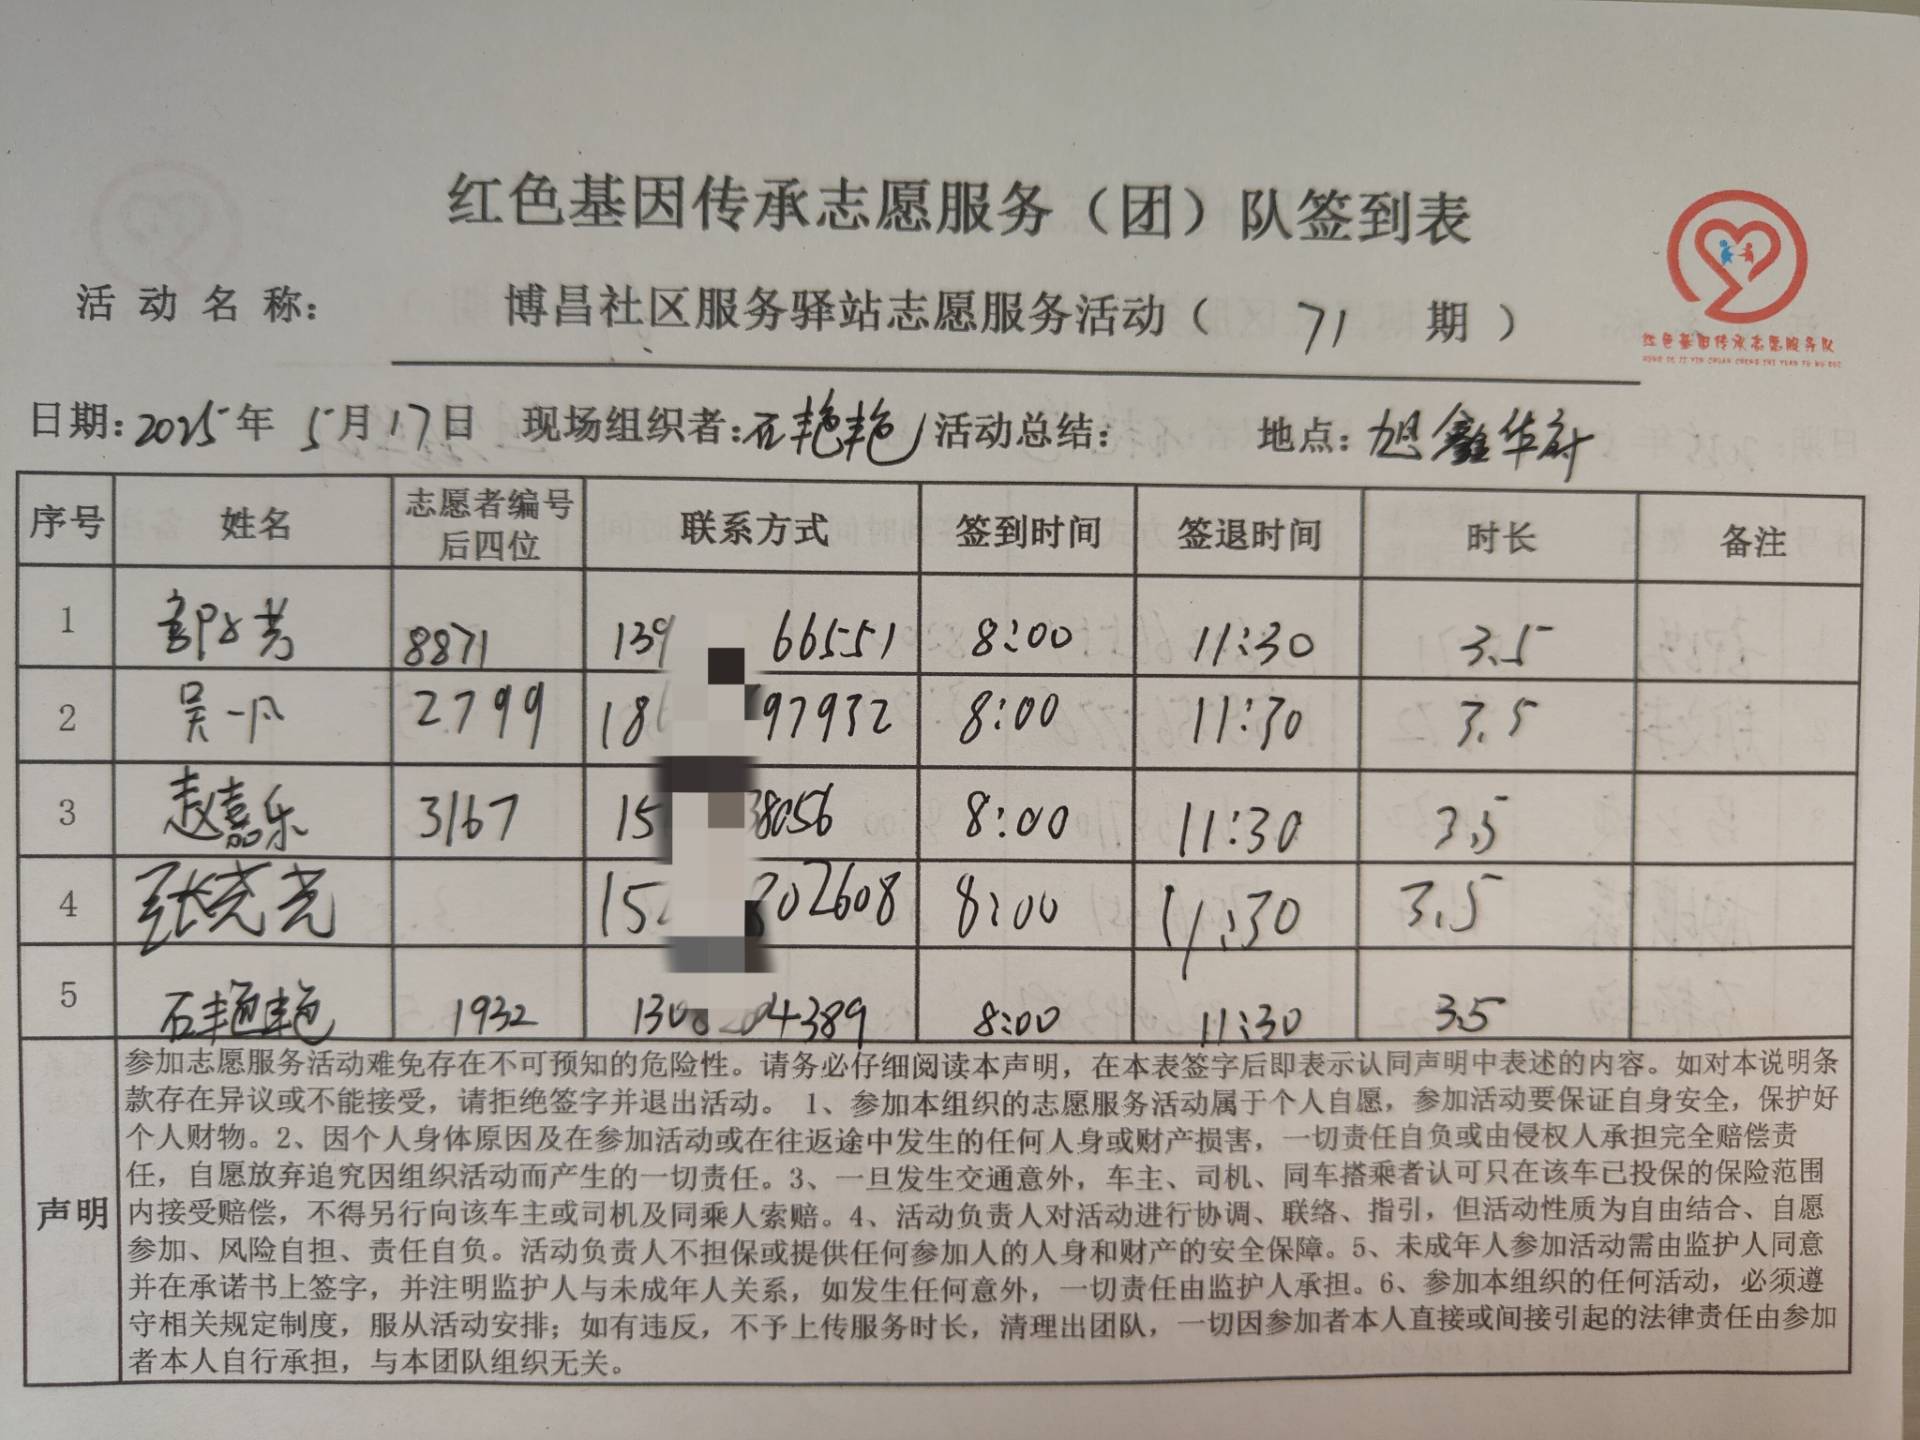 红色基因传承志愿服务（团）队签到表
活动名称： 博昌社区服务驿站志愿服务活动（ 71 期 ）
红色基因传承志愿服务队
日期：2025年 5月17日 现场组织者：石艳艳 活动总结： 地点：旭鑫华府
序号 姓名 志愿者编号后四位 联系方式 签到时间 签退时间 时长 备注
1 8871 139 66551 8:00 11:30 3.5
2 吴一凡 2799 18 97932 8:00 11:30 3.5
3 赵嘉乐 3167 15 38056 8:00 11:30 3.5
4 张尧尧 15 202608 8:00 11:30 3.5
5 石艳艳 1932 130 04389 8:00 11:30 3.5
声明
参加志愿服务活动难免存在不可预知的危险性。请务必仔细阅读本声明，在本表签字后即表示认同声明中表述的内容。如对本说明条
款存在异议或不能接受，请拒绝签字并退出活动。 1、参加本组织的志愿服务活动属于个人自愿，参加活动要保证自身安全，保护好
个人财物。2、因个人身体原因及在参加活动或在往返途中发生的任何人身或财产损害，一切责任自负或由侵权人承担完全赔偿责
任，自愿放弃追究因组织活动而产生的一切责任。3、一旦发生交通意外，车主、司机、同车搭乘者认可只在该车已投保的保险范围
内接受赔偿，不得另行向该车主或司机及同乘人索赔。4、活动负责人对活动进行协调、联络、指引，但活动性质为自由结合、自愿
参加、风险自担、责任自负。活动负责人不担保或提供任何参加人的人身和财产的安全保障。5、未成年人参加活动需由监护人同意
并在承诺书上签字，并注明监护人与未成年人关系，如发生任何意外，一切责任由监护人承担。6、参加本组织的任何活动，必须遵
守相关规定制度，服从活动安排；如有违反，不予上传服务时长，清理出团队，一切因参加者本人直接或间接引起的法律责任由参加
者本人自行承担，与本团队组织无关。